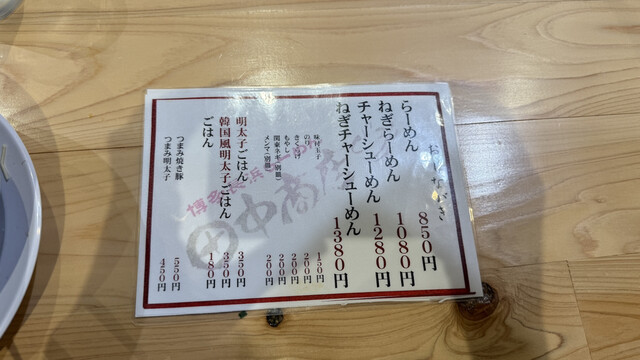 おしながき
らーめん 850円
ねぎらーめん 1080円
チャーシューめん 1280円
ねぎチャーシューめん 1380円
味付玉子 150円
のり 200円
きくらげ 200円
もやし 200円
関東ネギ(別皿) 200円
メンマ(別皿) 200円
明太子ごはん 350円
韓国風明太子ごはん 350円
ごはん 180円
つまみ焼き豚 550円
つまみ明太子 450円
博多長浜らーめん
田中商店